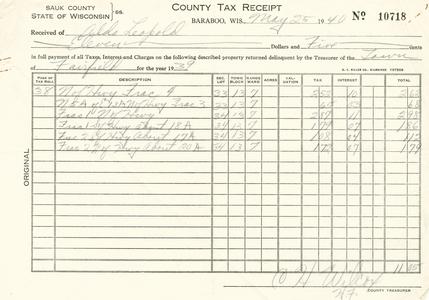 SAUK COUNTY
STATE OF WISCONSIN
COUNTY TAX RECEIPT
BARABOO, WIS., May 25 1940 No 10718
Received of Leopold
Eleven Dollars and Five
in full payment of all Taxes, Interest and Charges on the following described property returned delinquent by the Treasurer of the Town
of Fairfield for the year 1939
PAGE OF TAX ROLL DESCRIPTION SEC. LOT TOWN BLOCK RANGE WARD ACRES VALUATION TAX INTEREST TOTAL
38 N of Hwy Frac 4 33 13 7 10
33 13 7 03 68
Frac 1 N of Hwy 34 13 7 287 11 298
Frac 1 S of Hwy About 18 A 34 13 7 179 07 186
Frac 2 S of Hwy About 17 A 34 13 7 108 04 112
Frac 2 Hwy About 20 A 34 13 7 07 179
ORIGINAL
11 05
O H Wilcox
COUNTY TREASURER